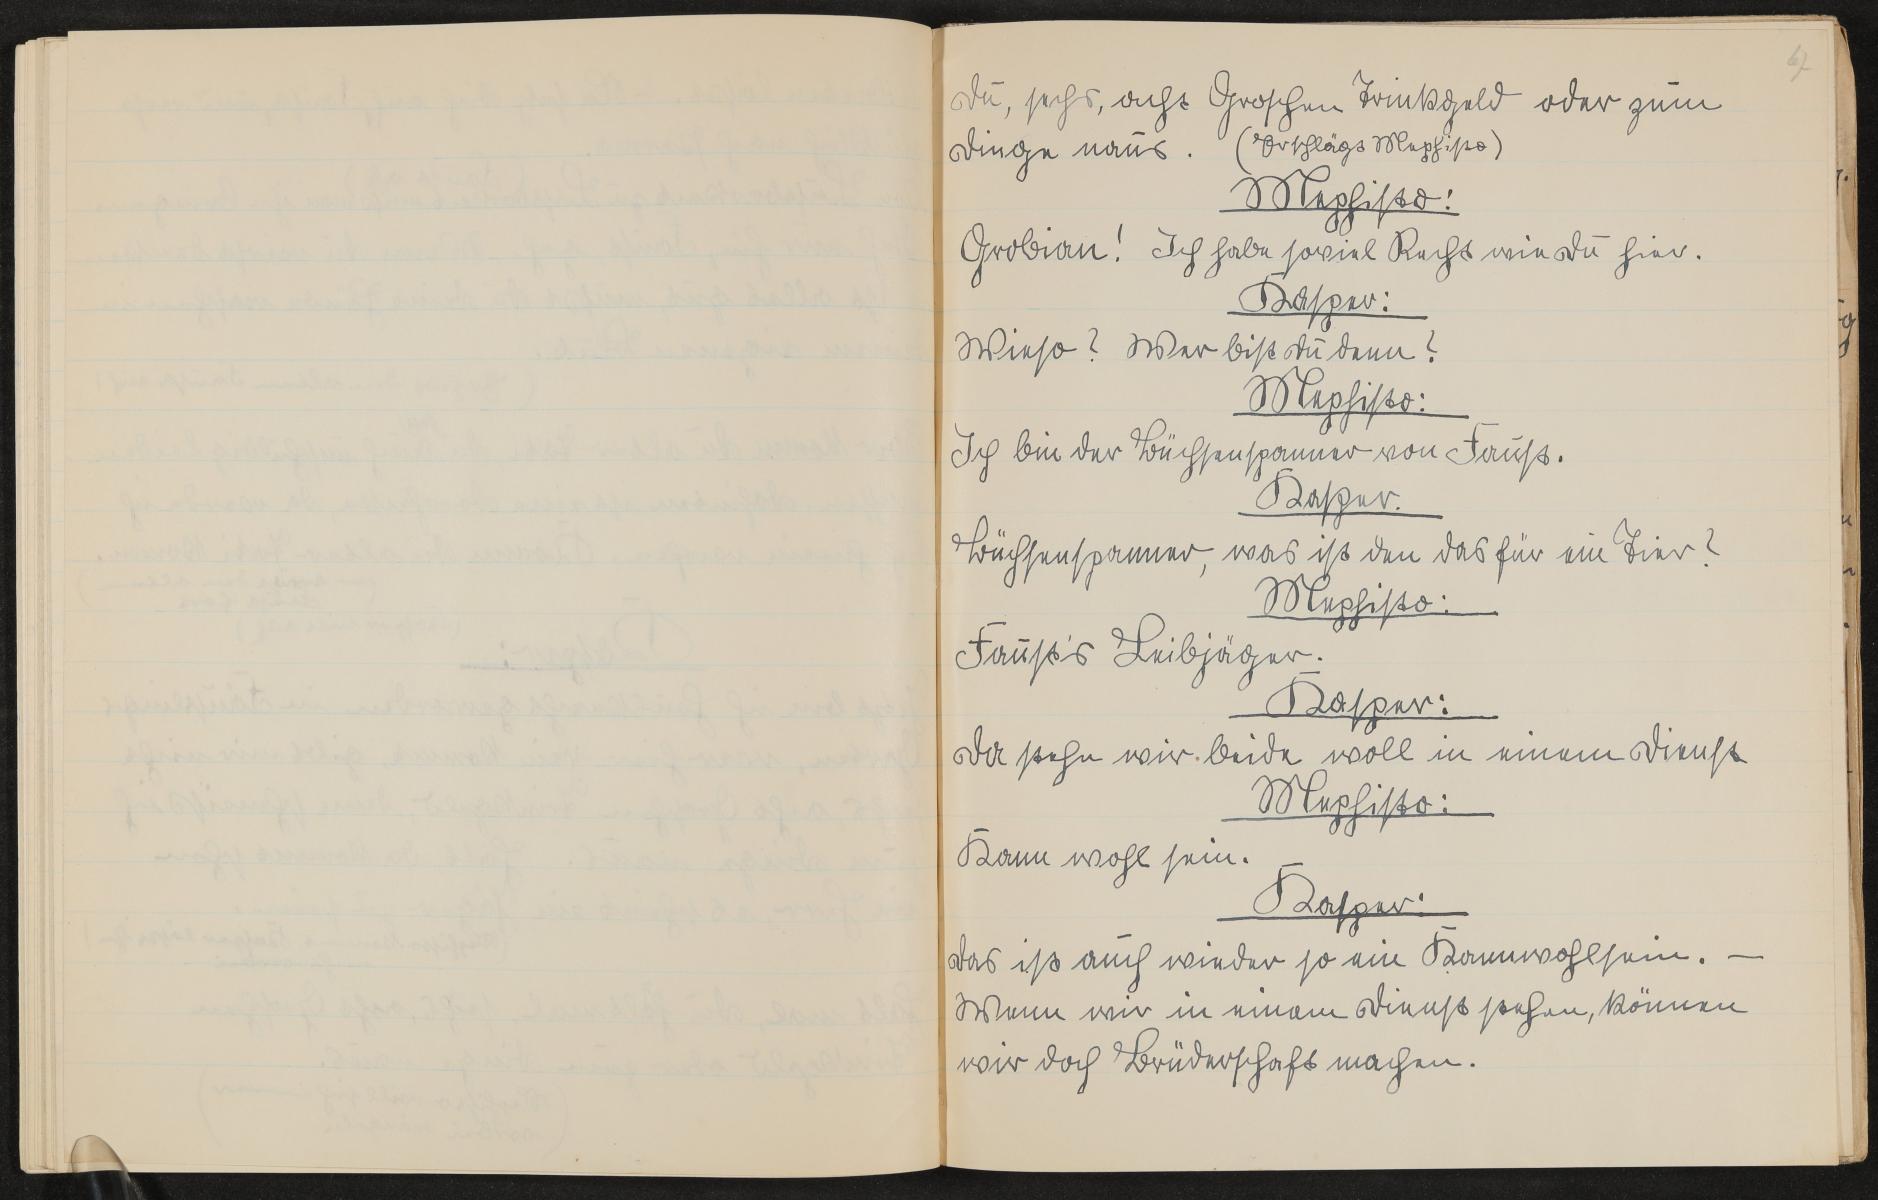 Du, sechs, acht Groschen Trinkgeld oder zum
Dinge naus. (Er schlägt Mephisto)
Mephisto:
Grobian! Ich habe soviel Recht wie du hier.
Kasper:
Wieso? Wer bist du denn?
Mephisto:
Ich bin der Büchsenspanner von Faust.
Kasper.
Büchsenspanner, was ist den das für ein Tier?
Mephisto:
Faust's Leibjäger.
Kasper:
Da stehn wir beide woll in einem Dienst
Mephisto:
Kann wohl sein.
Kasper:
Das ist auch wieder so ein Kannwohlsein. —
Wenn wir in einem Dienst stehen, können
wir doch Brüderschaft machen.